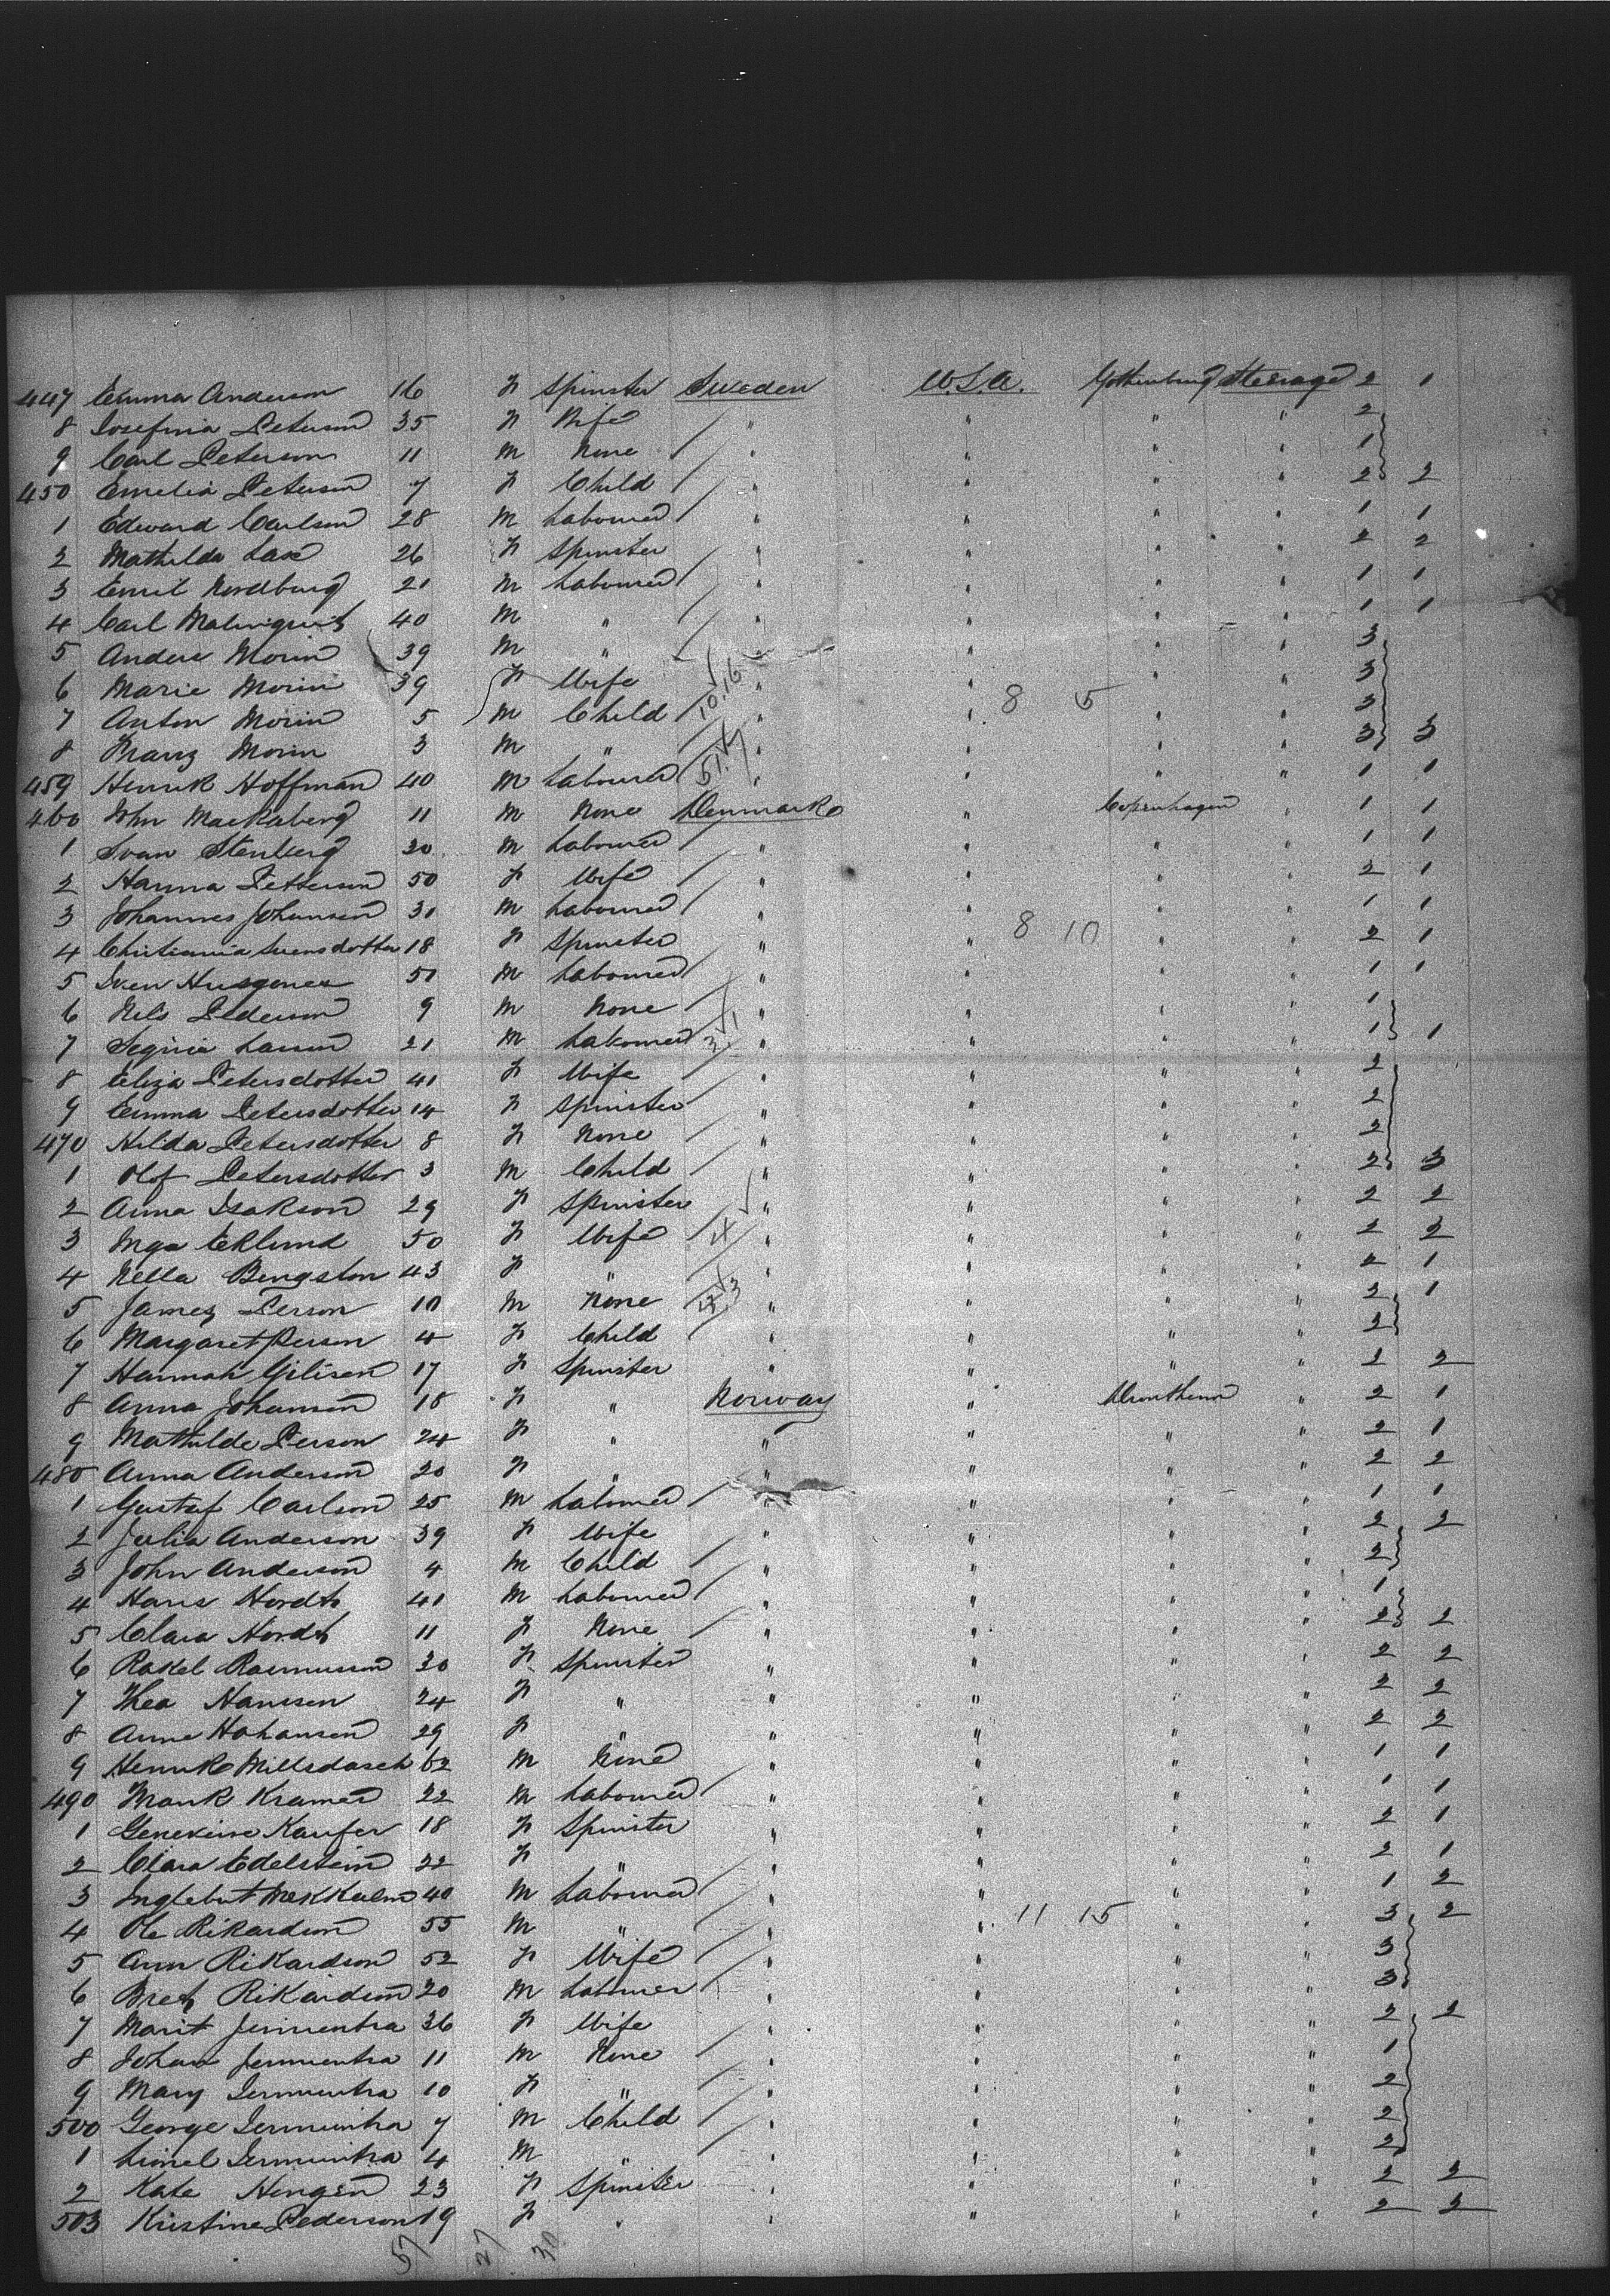 447 Emma Anderson 16 F Spinster Sweden U.S.A. Gothenburg Steerage 2 1
8 Josefina Peterson 35 F Wife " " " " 2
9 Carl Peterson 11 M None " " " " 1
450 Emelia Peterson 7 F Child " " " " 2 2
1 Edward Carlson 28 M Labourer " " " " 1 1
2 Mathilda Lax 26 F Spinster " " " " 2 2
3 Emil Nordburg 21 M Labourer " " " " 1 1
4 Carl Malmquist 40 M " " " " " 1 1
5 Anders Morin 39 M " " " " " 3
6 Marie Morin 39 F Wife 10.16 " " " " 3
7 Anton Morin 5 M Child " " 8 5 " " 3
8 Franz Morin 3 M " " " " " 3 3
459 Henrik Hoffman 40 M Labourer 51.7 " " " " 1 1
460 John Mackaberg 11 M None Denmark " Copenhagen " 1 1
1 Svan Stenberg 20 M Labourer " " " " 1 1
2 Hanna Petterson 50 F Wife " " " " 2 1
3 Johannes Johansen 31 M Labourer " " " " 1 1
4 Christiania Svensdotter 18 F Spinster " " 8 10 " " 2 1
5 Sven 51 M Labourer " " " " 1 1
6 Nels Pederson 9 M None " " " " 1
7 Larson 21 M Labourer 3 1 " " " " 1 1
8 Eliza Petersdotter 41 F Wife " " " " 2
9 Emma Petersdotter 14 F Spinster " " " " 2
470 Hilda Petersdotter 8 F None " " " " 2
1 Olof Petersdotter 3 M Child " " " " 2 3
2 Anna Isakson 29 F Spinster " " " " 2 2
3 Inga Eklund 50 F Wife " " " " 2 2
4 Nella Bengston 43 F " " " " " 2 1
5 James Person 10 M None " " " " 2 1
6 Margaret Person 4 F Child " " " " 2
7 Hannah Gilisen 17 F Spinster " " " " 2 2
8 Anna Johansen 18 F " Norway " Drontheim " 2 1
9 Mathilde Person 24 F " " " " " 2 1
480 Anna Anderson 20 F " " " " " 2 2
1 Gustaf Carlson 25 M Labourer " " " " 1 1
2 Julia Anderson 39 F Wife " " " " 2 2
3 John Anderson 4 M Child " " " " 2
4 Hans Hordt 41 M Labourer " " " " 1
5 Clara Hordt 11 F None " " " " 2 2
6 Rakel Rasmusson 20 F Spinster " " " " 2 2
7 Thea Hansen 24 F " " " " " 2 2
8 Anne Hohansen 29 F " " " " " 2 2
9 Henrik Millsdasch 62 M None " " " " 1 1
490 Frank Kramer 22 M Labourer " " " " 1 1
1 Genevieve Kaufer 18 F Spinster " " " " 2 1
2 Clara Edelstein 22 F " " " " " 2 1
3 40 M Labourer " " " " 1 2
4 Ole Rikardson 55 M " " " 11 15 " " 3 2
5 Ann Rikardson 52 F Wife " " " " 3
6 Rikardson 20 M Labourer " " " " 3
7 Marit Jermuntra 36 F Wife " " " " 2 2
8 Johan Jermuntra 11 M None " " " " 1
9 Mary Jermuntra 10 F " " " " " 2
500 George Jermuntra 7 M Child " " " " 2
1 Lionel Jermuntra 4 M " " " " " 2
2 Kate Hengen 23 F Spinster " " " " 2 2
503 Kristine Pederson 19 F " " " " " 2 2
57 27 30